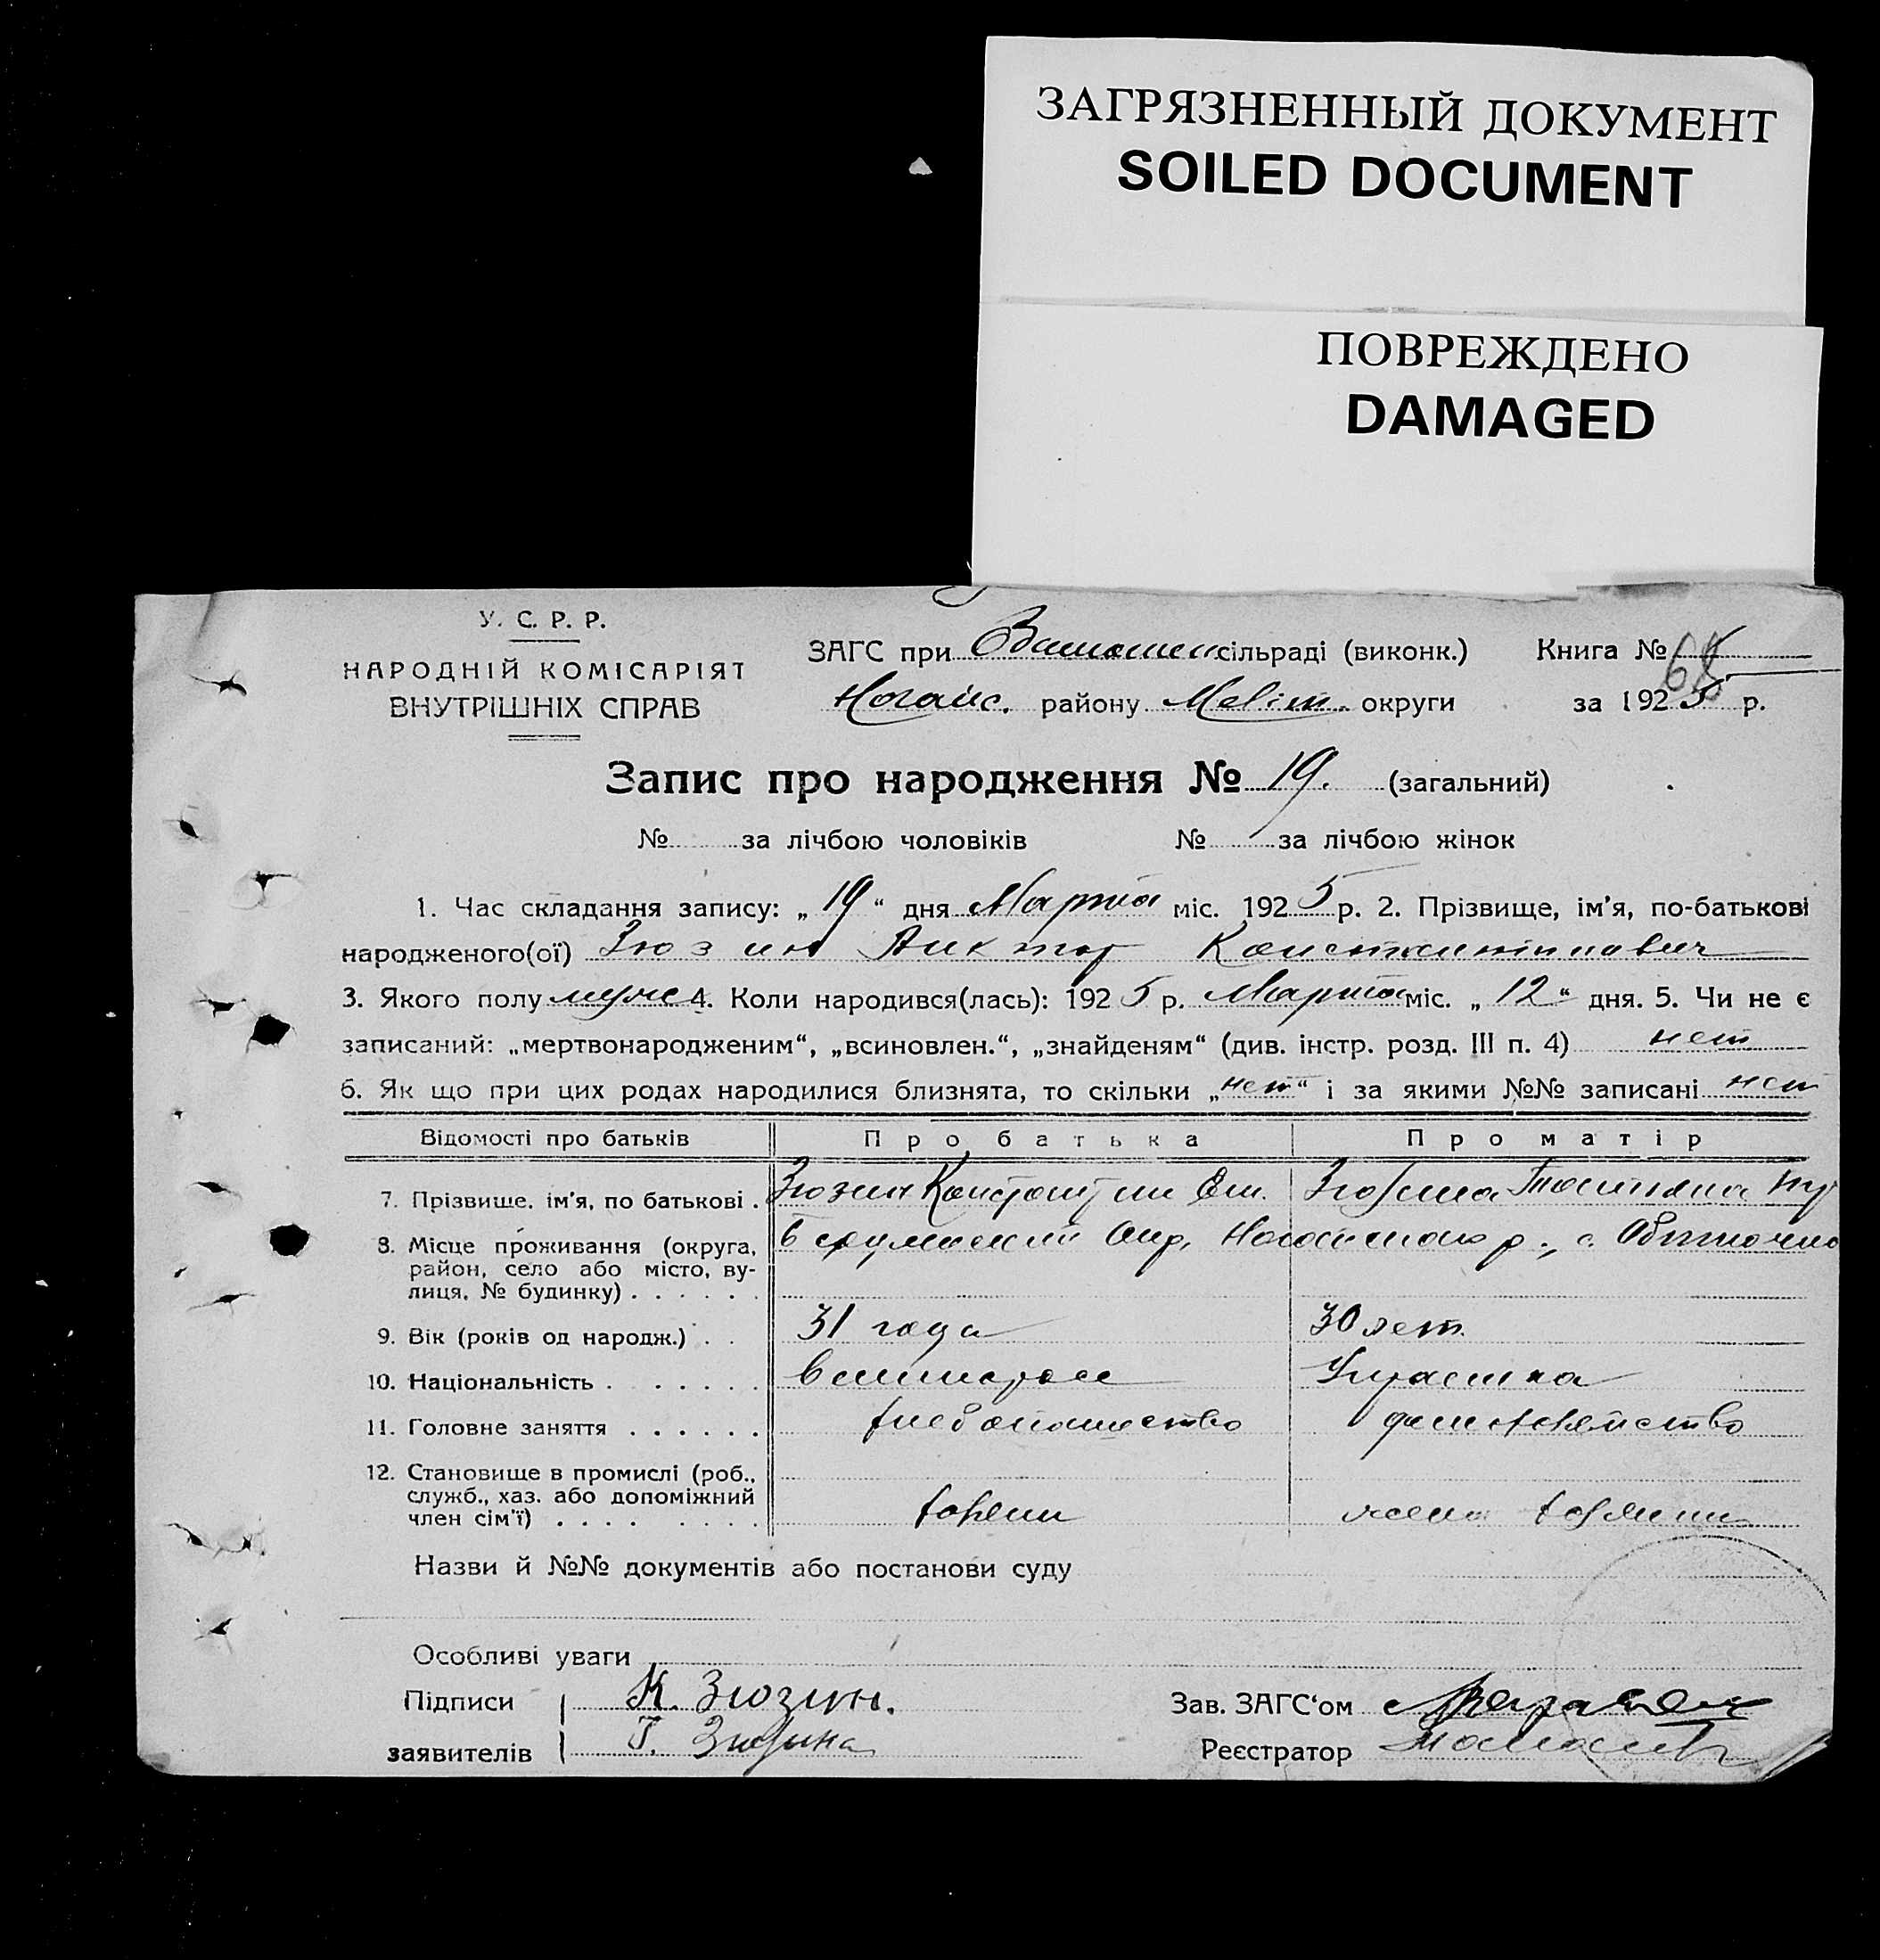 ЗАГРЯЗНЕННЫЙ ДОКУМЕНТ
SOILED DOCUMENT
ПОВРЕЖДЕНО
DAMAGED
У. С. Р. Р.
НАРОДНІЙ КОМІСАРІЯТ
ВНУТРІШНІХ СПРАВ
ЗАГС при сільраді (виконк.) Книга №
Ногайс. району Меліт. округи за 1925 р.
Запис про народження № 19. (загальний)
№ за лічбою чоловіків № за лічбою жінок
1. Час складання запису: „19“ дня Марта міс. 1925 р. 2. Прізвище, ім'я, по-батькові
народженого(ої) Зюзин Виктор Константинович
3. Якого полу муж 4. Коли народився(лась): 1925 р. Марта міс. „12“ дня. 5. Чи не є
записаний: „мертвонародженим“, „всиновлен.“, „знайденям“ (див. інстр. розд. III п. 4) нет
6. Як що при цих родах народилися близнята, то скільки „нет“ і за якими №№ записані нет
Відомості про батьків Про батька Про матір
7. Прізвище, ім'я, по батькові . Зюзин Константин Зюзина Татияна
8. Місце проживання (округа,
район, село або місто, ву-
лиця, № будинку) . . . . . .
9. Вік (років од народж.) . . 31 года 30 лет
10. Національність . . . . . .
11. Головне заняття . . . . . . хлебопашество домохозяйство
12. Становище в промислі (роб.,
служб., хаз. або допоміжний
член сім'ї) . . . . . . . . хозяин жена хозяина
Назви й №№ документів або постанови суду
Особливі уваги
Підписи К. Зюзин. Зав. ЗАГС‘ом
заявителів Т. Зюзина Реєстратор